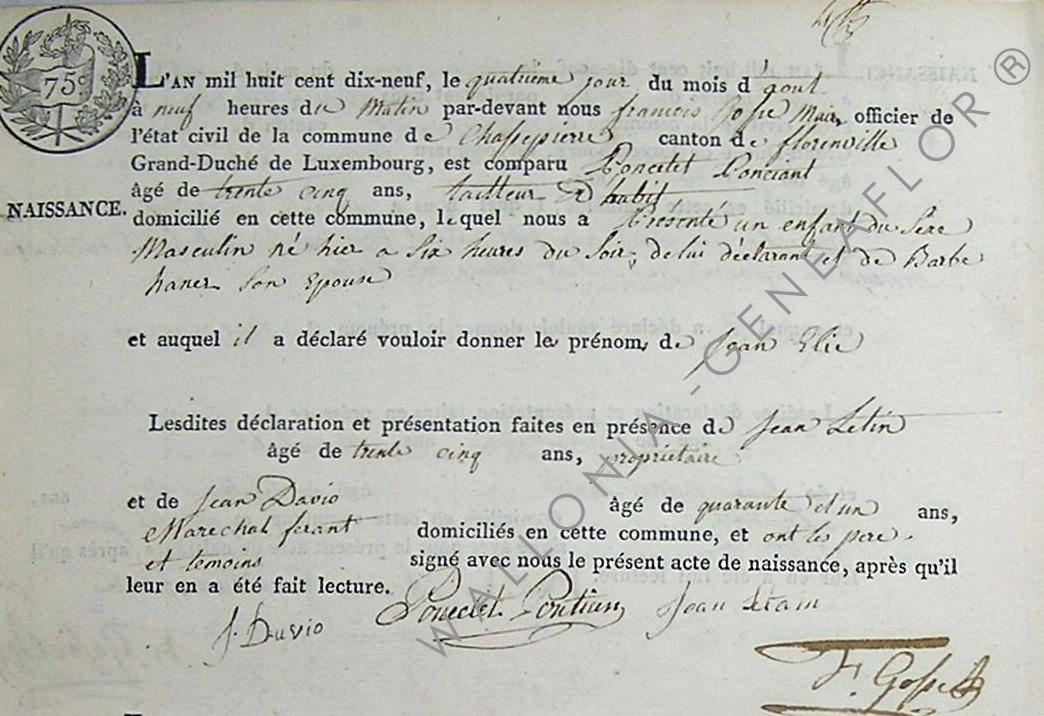 75c
L'AN mil huit cent dix-neuf, le quatrième jour du mois d'aout
à neuf heures du Matin par-devant nous francois Gosse Maire officier de
l'état civil de la commune de Chassepierre canton de florenville
Grand-Duché de Luxembourg, est comparu Poncelet Ponciant
âgé de trente cinq ans, tailleur D'habit
NAISSANCE.
domicilié en cette commune, lequel nous a Présenté un enfant du Sexe
Masculin né hier a Six heures du Soir, de lui déclarant et de Barbe
haner Son Epouse
et auquel il a déclaré vouloir donner les prénoms de Jean Elie
Lesdites déclaration et présentation faites en présence de Jean Letin
âgé de trente cinq ans, propriétaire
et de Jean Davio âgé de quarante et un ans,
Marechal ferant domiciliés en cette commune, et ont les pere
et temoins signé avec nous le présent acte de naissance, après qu'il
leur en a été fait lecture.
J. Davio Poncelet Pontien Jean Letain
F. Gosse
WALLONIA - GENEAFLOR ®